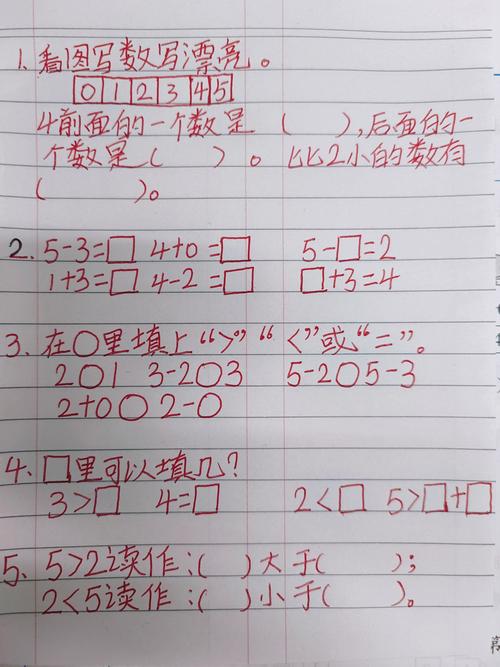 1. 看图写数写漂亮。
0 1 2 3 4 5
4前面的一个数是( ),后面的一
个数是( )。比2小的数有
( )。
2. 5-3=□ 4+0=□ 5-□=2
1+3=□ 4-2=□ □+3=4
3. 在○里填上“>”“<”或“=”。
2○1 3-2○3 5-2○5-3
2+0○2-0
4、□里可以填几?
3>□ 4=□ 2<□ 5>□+□
5、5>2读作:( )大于( );
2<5读作:( )小于( )。